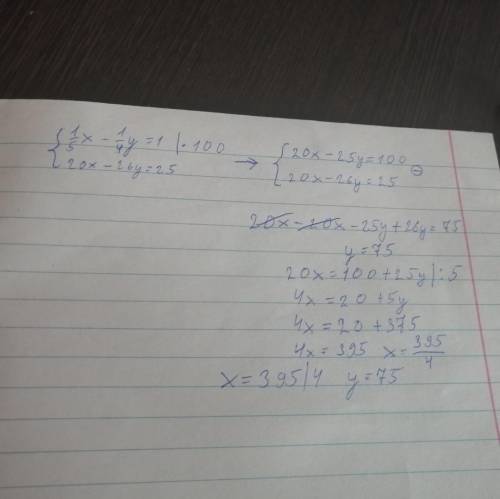 { 1/5 x - 1/4 y = 1 | · 100 → { 20x - 25y = 100 ⊖
{ 20x - 26y = 25 { 20x - 26y = 25
20x - 20x - 25y + 26y = 75
y = 75
20x = 100 + 25y | : 5
4x = 20 + 5y
4x = 20 + 375
4x = 395 x = 395/4
x = 395/4 y = 75